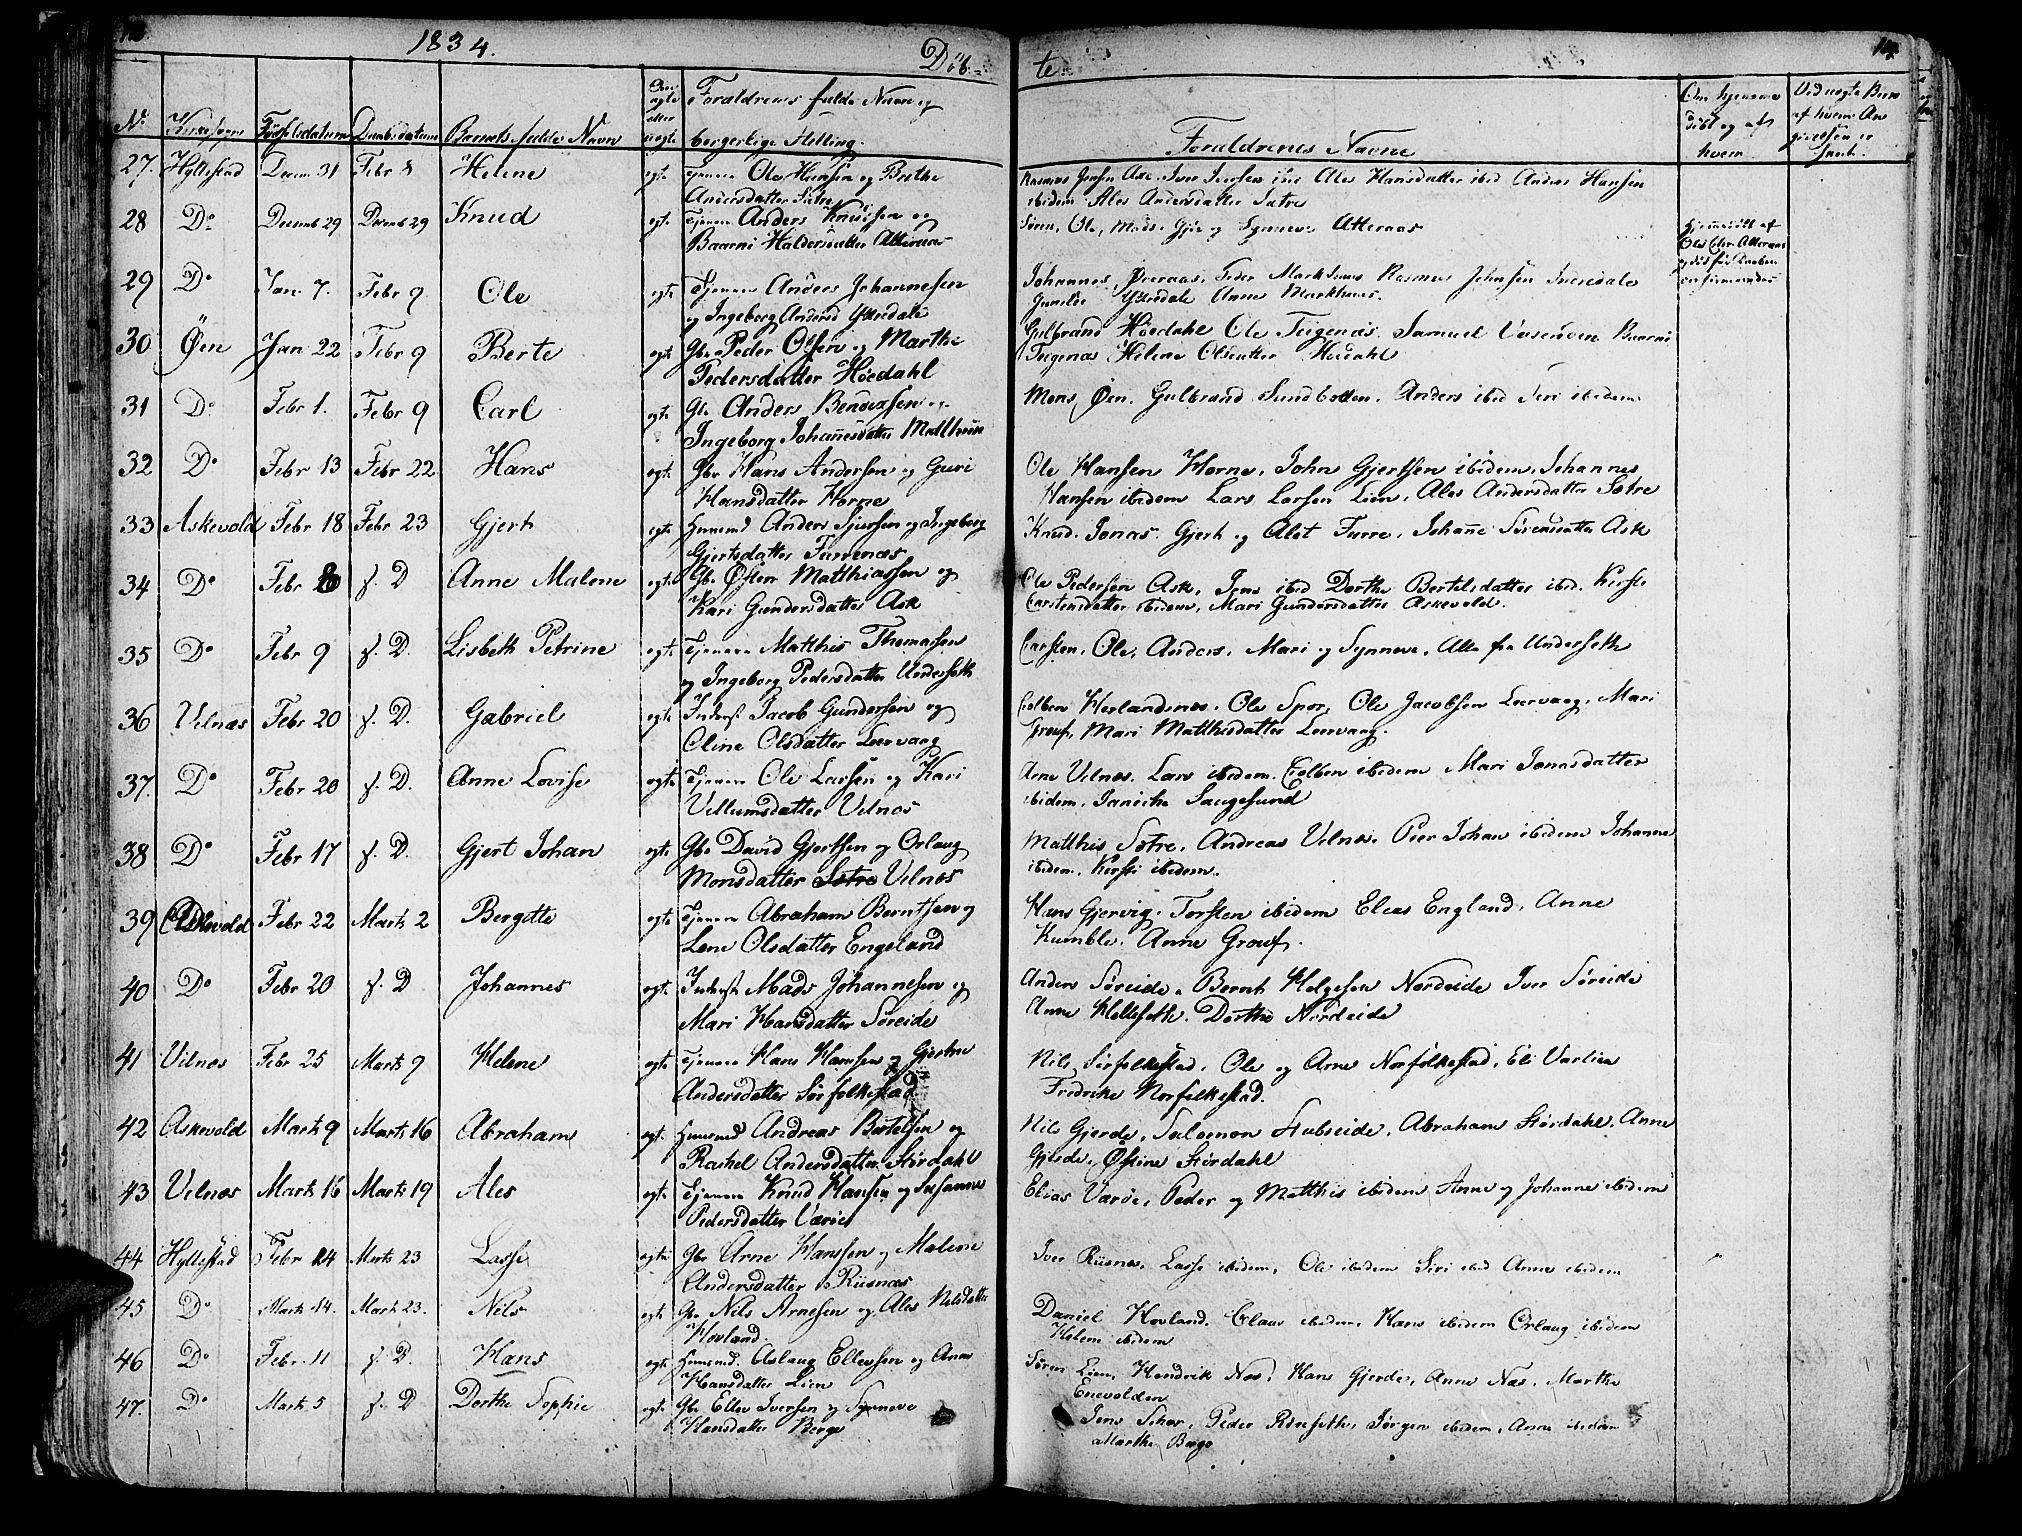 1834.
Döb-
te
14.
No Kirkesogn Födselsdatum Daabsdatum Barnets fulde Navn Om ægte eller uægte Forældrenes fulde Navn og borgerlige Stilling.
Forældrenes Navne
Om hjemme döbt og af hvem
Ved uægte Börn af hvem Angivelsen er skeet.
27. Hyllestad Decem. 31 Febr 8 Helene ægte Tjenere Ole Hansen og Berthe
Andersdatter Sætre
Rasmus Jensen Ask. Iver Iversen ibid Ales Hansdatter ibid Anders Hansen
ibidem Ales Andersdatter Sætre
28 Do Decemb 29 Decemb 29 Knud ægt. Tjenere Anders Knudsen og
Baarni Haldorsdatter Atteraas
Ole, Mads, og Synneve Atteraas
Hjemmedöbt af
Ole Atteraas
29 Do Jan 7. Febr 9 Ole ægte Tjenere Anders Johannessen
og Ingeborg Andersd Ytredale
Johannes Överaas, Peder Markhuus Rasmus Johnsen Indredale
Gunilde Ytredale Anne Markhuus.
30 Öen Jan 22 Febr 9 Berte ægte Gbr Peder Olsen og Marthe
Pedersdatter Höedahl
Gulbrand Höedahl Ole Teigenæs. Samuel Baarni
Teigenæs, Helene Olsdatter Höedahl
31 Do Febr 1. Febr 9 Carl ægte Gbr Anders Bendixsen og
Ingeborg Johannesdatter
Mons Öen. Gulbrand Sundbotten. Anders ibid Siri ibidem
32 Do Febr 13 Febr 22 Hans ægte Gbr Hans Andersen og Guri
Hansdatter Horne
Ole Hansen Horne, John Gjertsen ibidem, Johannes
Hansen ibidem Lars Larsen Lien, Ales Andersdatter Sætre
33 Askevold Febr 18 Febr 23 Gjert ægte Huusmd Anders Sjursen og Ingeborg
Gjertsdatter Furrenæs
Knud. Jonas. Gjert og Alet Furre, Johanne Sörensdatter Ask
34 Do Febr 8 s. D Anne Malene ægte Gbr Östen Matthiassen og
Kari Gundersdatter Ask
Ole Pedersen Ask, Jens ibid Dorthe Bertelsdatter ibd. Kirsti
Carstensdatter ibidem, Mari Gundersdatter Askevold.
35 Do Febr 9 s. D. Lisbeth Petrine ægte Tjenere Matthis Thomassen
og Ingeborg Pedersdatter Underseth
Carsten, Ole, Anders, Mari og Synneve, Alle fra Underseth
36 Vilnæs Febr 20 s. D. Gabriel ægte Inderst Jacob Gundersen og
Oline Olsdatter Leervaag
Colben Herlandsnæs. Ole Spor, Ole Jacobsen Leervaag. Mari
Grouf, Mari Matthisdatter Leervaag.
37. Do Febr 20 s. D. Anne Lovise ægte Tjenere Ole Larsen og Kari
Villumsdatter Vilnæs
Arne Vilnæs. Lars ibidem. Colben ibidem Mari Jonasdatter
ibidem. Janiche Saugesund
38 Do Febr 17 s. D. Gjert Johan ægte Gbr David Gjertsen og Orlaug
Monsdatter Sætre Vilnæs
Matthis Sætre, Andreas Vilnæs, Peer Johan ibidem Johanne
ibidem. Kirsti ibidem.
39 Askevold Febr 22 Marts 2 Bergitte ægte Tjenere Abraham Berntsen og
Lene Olsdatter Engeland
Hans Gjervig. Torsten ibidem Elias England, Anne
Kumble. Anne Grouf.
40 Do Febr 20 s. D Johannes ægte Inderst Mads Johannesen og
Mari Hansdatter Söreide
Anders Söreide, Bernt Helgesen Nordeide Iver Söreide
Anne Helleseth. Dorthe Nordeide
41 Vilnæs Febr 25 Marts 9 Helene ægte Tjenere Hans Hansen og Gjertrue
Andersdatter Sörfolkestad
Nils Sörfolkestad, Ole og Arne Norfolkestad, Eli Varlien
Fredrike Norfolkestad.
42 Askevold Marts 9 Marts 16 Abraham ægt. Huusmd Andreas Bertelsen og
Rachel Andersdatter Stördahl
Nils Gjerde, Salomon Stubseide, Abraham Stördahl. Anne
Gjerde, Östine Stördahl
43 Vilnæs Marts 16 Marts 19 Ales ægte Tjenere Knud Hansen og Susanne
Pedersdatter Væröe
Elias Væröe, Peder og Matthis ibidem Anne og Johanne ibidem
44 Hyllestad Febr 24 Marts 23 Lasse ægte Gbr Arne Hansen og Malene
Andersdatter Riisnæs
Iver Riisnæs, Lasse ibidem, Ole ibidem Siri ibid Anne ibidem
45 Do Marts 14. Marts 23. Nils ægte Gbr Nils Arnesen og Ales Nilsdatter
Hovland.
Daniel Hovland. Claus ibidem, Hans ibidem Orlaug ibidem
Helene ibidem
46 Do Febr 11 s. D. Hans ægte Huusmd. Aslaug Ellevsen og Anne
Hansdatter Lien
Sören Lien, Hendrik Næs, Hans Gjerde, Anne Næs, Marthe
Enevolden
47. Do Marts 5 s. D Dorthe Sophie ægte Gbr Ellev Iversen og Synneve
Hansdatter Berge
Jens Peder Rönseth, Jörgen ibidem, Anne ibidem
Marthe Berge